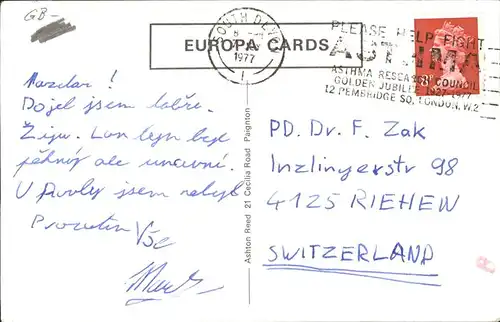 GB-
EUROPA CARDS
SOUTH DEVON
1977
1
PLEASE HELP FIGHT
ASTHMA
ASTHMA RESEARCH COUNCIL
GOLDEN JUBILEE 1927-1977
12 PEMBRIDGE SQ. LONDON. W.2
Nazdar!
Dojel jsem dobře.
Žiju. Londýn byl
pěkný ale unavení.
U Pavly jsem nebyl
Prozatím Vše
Ashton Reed 21 Cecilia Road Paignton
PD. Dr. F. Zak
Inzlingerstr 98
4125 RIEHEN
SWITZERLAND